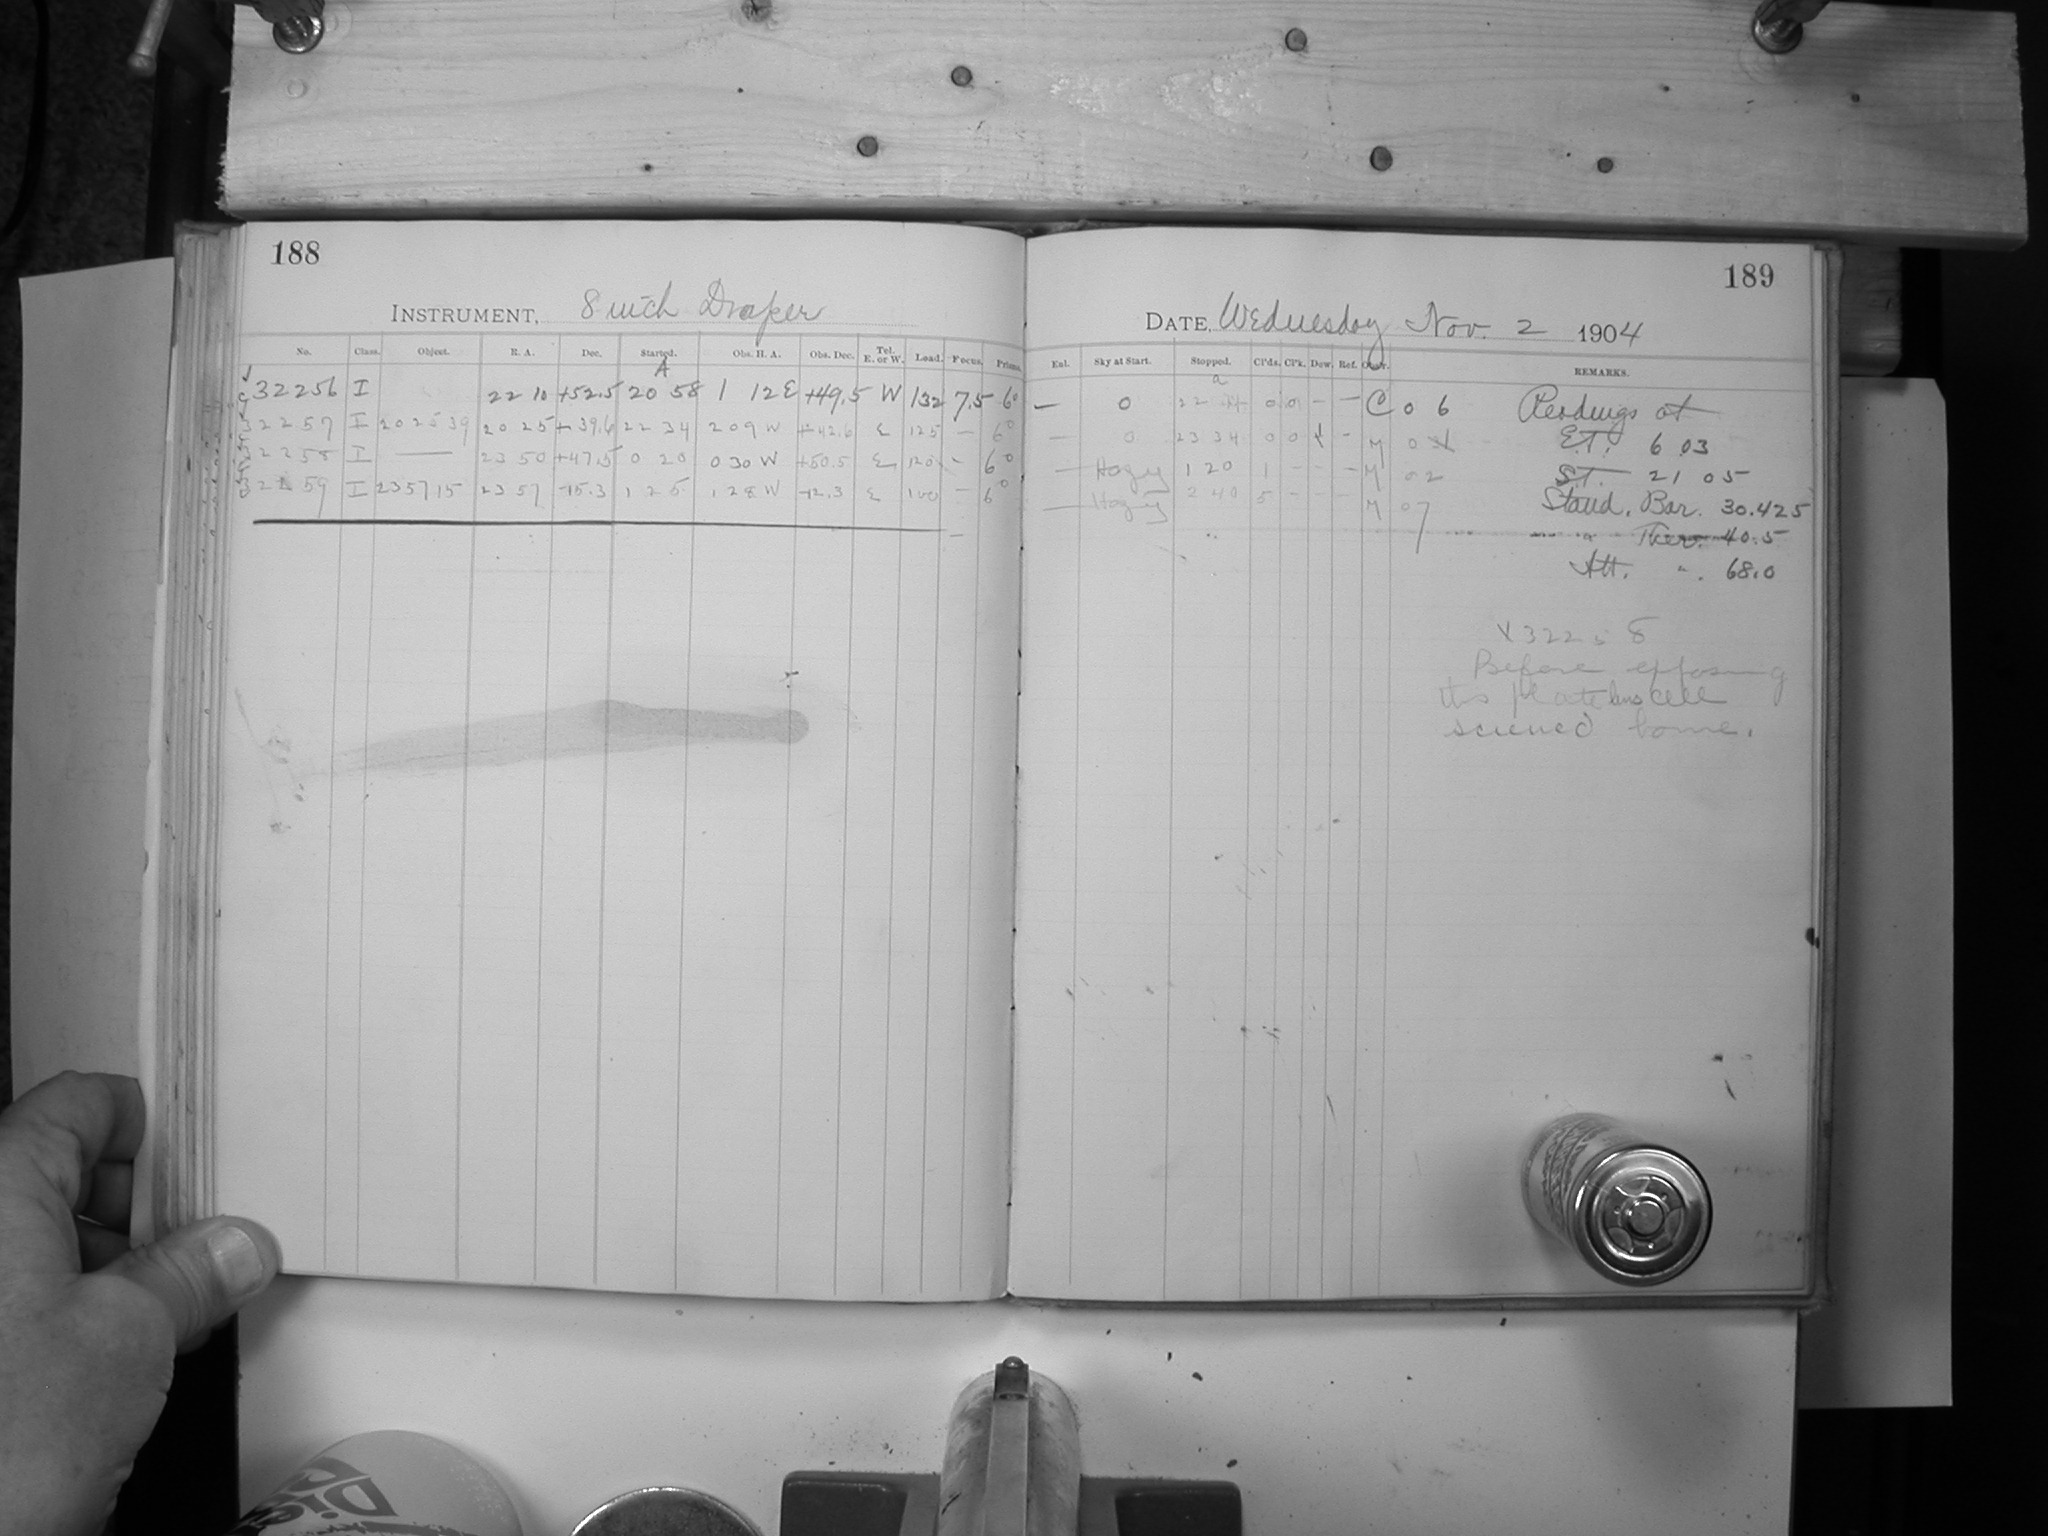 188
INSTRUMENT, 8 inch Draper
No. Class. Object. R. A. Dec. Started. Obs. H. A. Obs. Dec. Tel. E. or W. Load. Focus. Prisms.
A
32256 I 22 10 +52.5 20 58 1 12 E +49.5 W 132 7.5 6°
32257 I 202539 20 25 +39.6 22 34 2 09 W +42.6 E 125 — 6°
32258 I — 23 50 +47.5 0 20 0 30 W +50.5 E 120 - 6°
32259 I 235715 23 57 -15.3 1 25 1 28 W -12.3 E 100 - 6°
189
DATE, Wednesday Nov. 2 1904
Enl. Sky at Start. Stopped. Cl'ds. Cl'k. Dew. Ref. Obsr. REMARKS.
a
— 0 22 0 0 - - C 0 6 Readings at
— 0 23 34 0 0 - M 0 E.T. 6 03
— Hazy 1 20 1 - - - M 02 S.T. 21 05
— Hazy 2 40 5 - - - M 07 Stand. Bar. 30.425
" Ther. 40.5
Att. " 68.0
X32258
Before exposing
this plate lens cell
screwed home.
Die